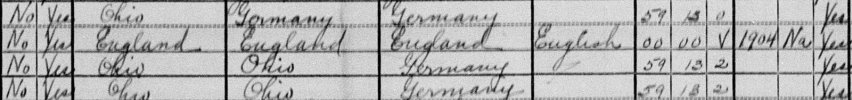 No Yes Ohio Germany Germany 59 13 0 Yes
No Yes England England England English 00 00 V 1904 Na Yes
No Yes Ohio Ohio Germany 59 13 2 Yes
No Yes Ohio Ohio Germany 59 13 2 Yes